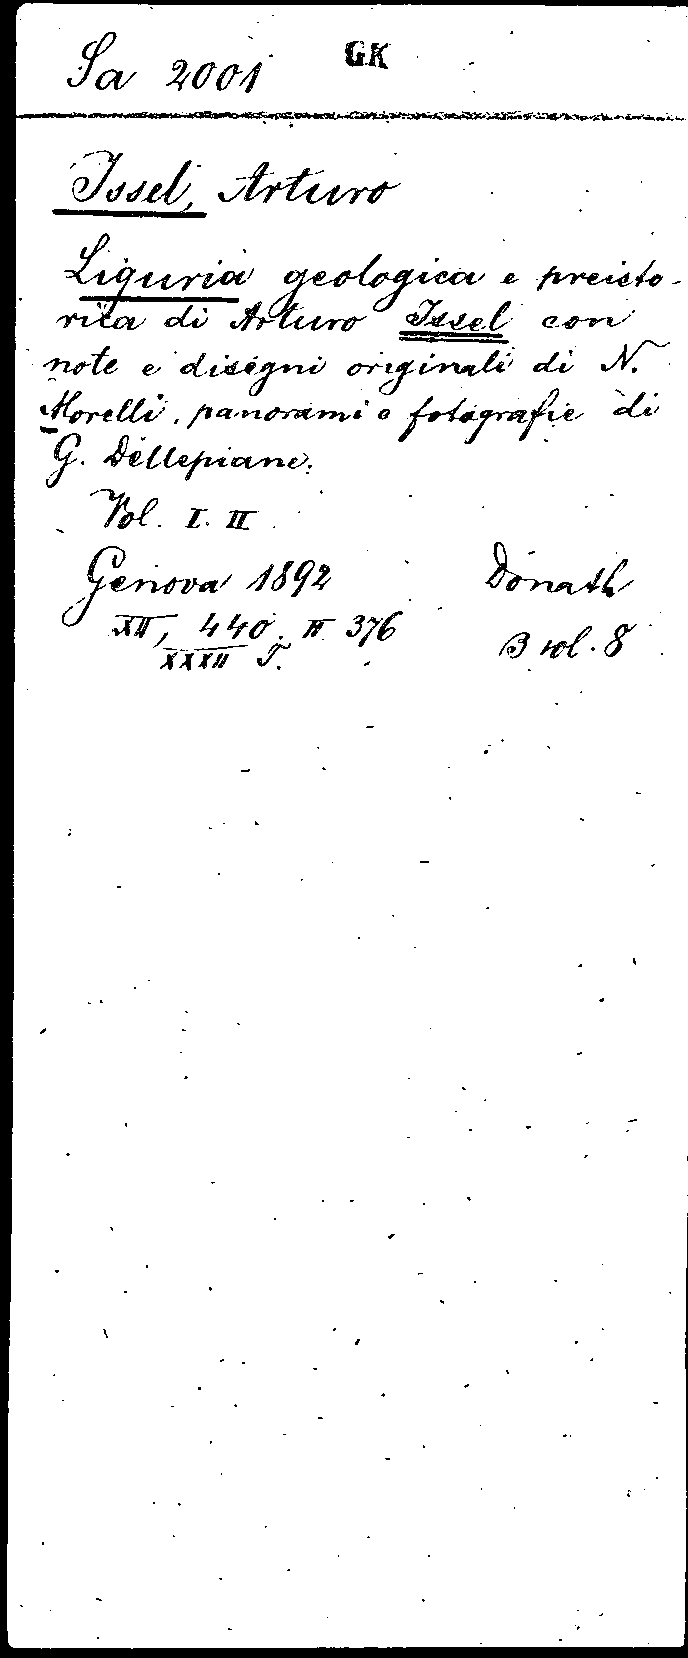 Sa 2001 GK
Issel, Arturo
Liguria geologica e preisto-
rica di Arturo Issel con
note e disegni originali di N.
Morelli, panorami e fotografie di
G. Dellepiane.
Vol. I. II
Genova 1892 Donath
XII, 440. II 376
XXXII T. 8